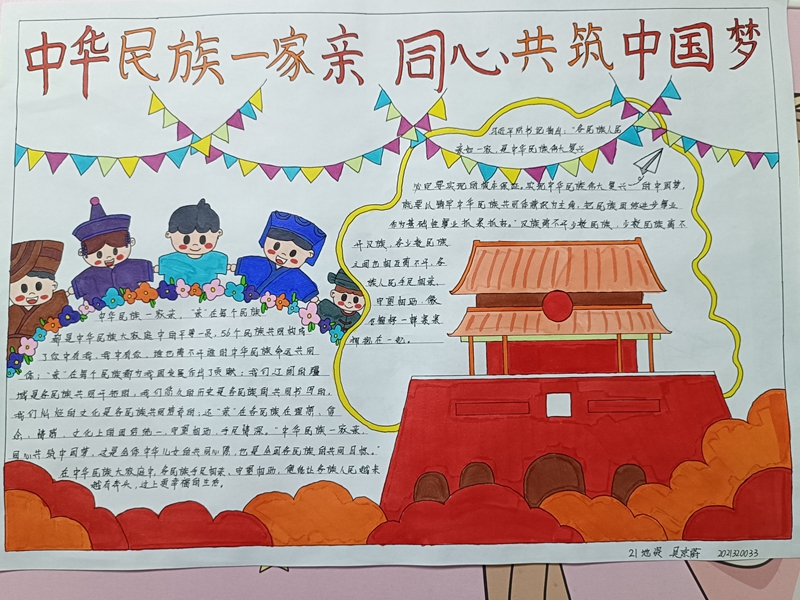 中华民族一家亲 同心共筑中国梦
习近平总书记指出："各民族人民
亲如一家,是中华民族伟大复兴
必定要实现的根本保证。实现中华民族伟大复兴的中国梦,
就要以铸牢中华民族共同体意识为主线,把民族团结进步事业
作为基础性事业抓紧抓好。"汉族离不开少数民族,少数民族离不
开汉族,各少数民族
之间也相互离不开,各
族人民手足相亲、
守望相助,像
石榴籽一样紧紧
拥抱在一起。
中华民族一家亲,"亲"在每个民族
都是中华民族大家庭中的平等一员,56个民族共同构成
了你中有我,我中有你、谁也离不开谁的中华民族命运共同
体;"亲"在每个民族都为我国发展作出了贡献;我们辽阔的疆
域是各民族共同开拓的,我们悠久的历史是各民族共同书写的,
我们灿烂的文化是各民族共同创造的;还"亲"在各民族在理想、信
念、情感、文化上的团结统一,守望相助、手足情深。"中华民族一家亲,
同心共筑中国梦,这是全体中华儿女的共同心愿,也是全国各民族的共同目标。"
在中华民族大家庭中,各民族手足相亲、守望相助,
越有奔头,过上更幸福的生活。
21地炎 2021320033